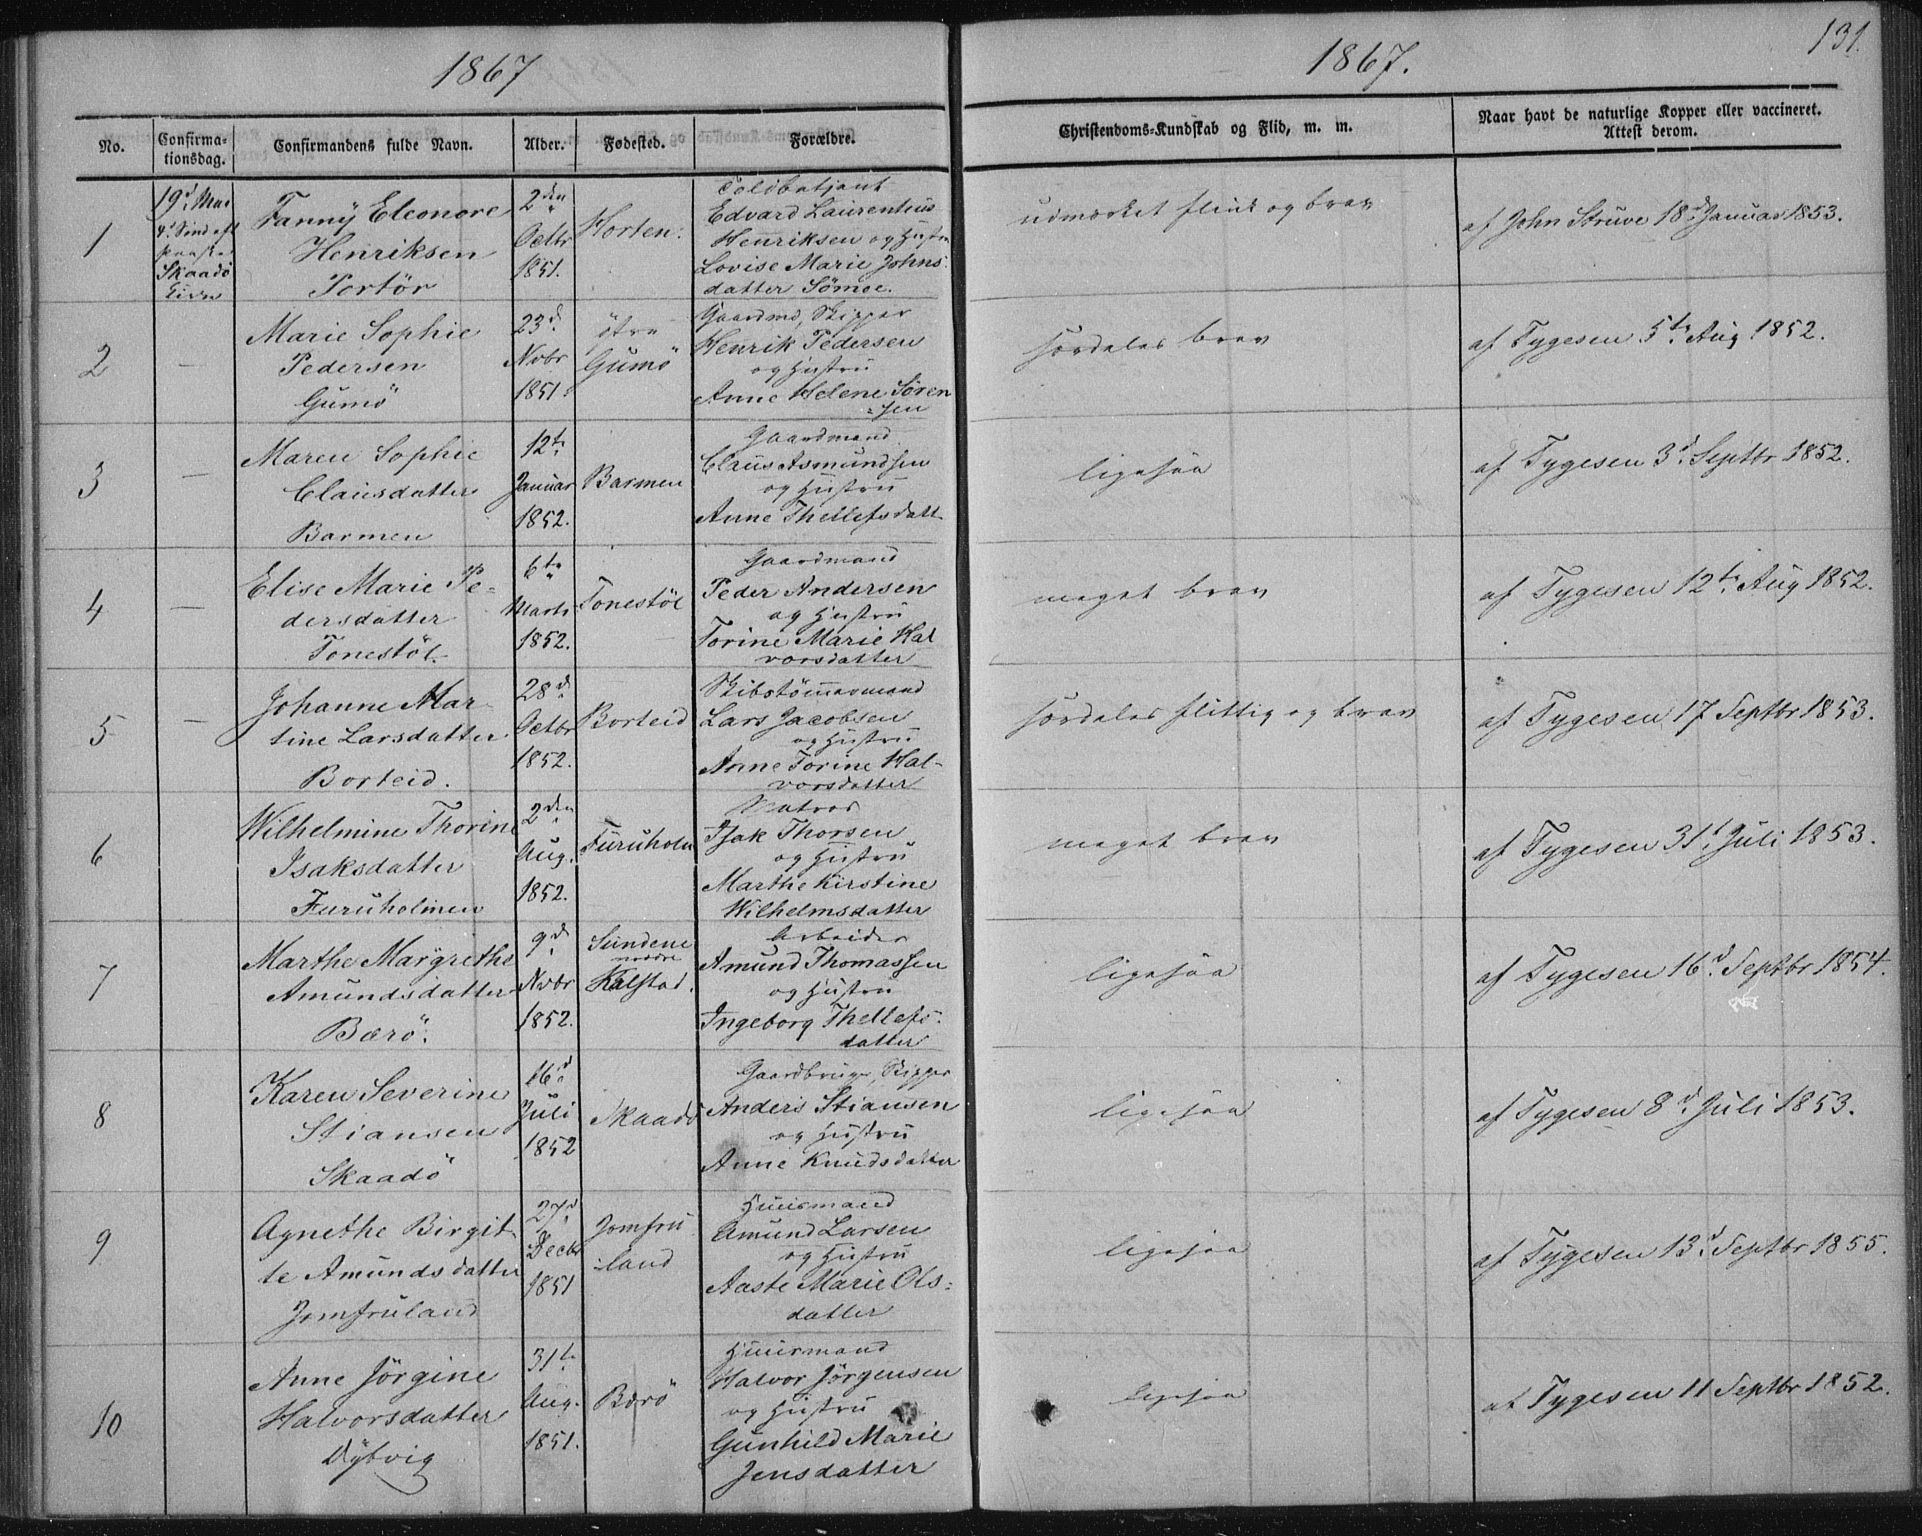 1867
1867.
131.
No.
Confirma-
tionsdag.
Confirmandens fulde Navn.
Alder.
Fødested.
Forældre.
Christendoms-Kundskab og Flid, m. m.
Naar havt de naturlige Kopper eller vaccineret.
Attest derom.
1
19d Mai
4d Sönd eft
Paaske
Skaadö
Kirke
Fanny Eleonore
Henriksen
Portör
2den
Octbr
1851.
Horten.
Toldbetjent
Edvard Laurentius
Henriksen og Hustru
Lovise Marie Johns-
datter Sömoe.
udmærket flink og brav
af John Struve 18d Januar 1853.
2
—
Marie Sophie
Pedersen
Gumö
23d
Nvbr
1851.
Gumö
Gaardmd, Skipper
Henrik Pedersen
og Hustru
Anne Helene Sören
=sen
særdeles brav
af Tygesen 5te Aug 1852.
3
—
Maren Sophie
Clausdatter
Barmen
12te
Januar
1852.
Barmen
Gaardmand
Claus Asmundsen
og Hustru
Anne Thellefsdatt
ligesaa
af Tygesen 3d Septbr 1852.
4
—
Elise Marie Pe-
dersdatter
Tonestöl
6te
Marts
1852.
Tonestöl
Gaardmand
Peder Andersen
og Hustru
Torine Marie Hal
vorsdatter
meget brav
af Tygesen 12te Aug 1852.
5
—
Johanne Mar-
tine Larsdatter
Borteid.
28d
Octbr
1852.
Borteid
Skibstömmermand
Lars Jacobsen
og Hustru
Anne Torine Hal-
vorsdatter
særdeles flittig og brav
af Tygesen 17 Septbr 1853.
6
Wilhelmine Thorine
Isaksdatter
Furuholmen
2den
Aug.
1852.
Furuholm
Matros
Isak Thorsen
og Hustru
Marthe Kirstine
Wilhelmsdatter
meget brav
af Tygesen 31t Juli 1853.
7
Marthe Margrethe
Amundsdatter
Bærö.
9d
Nvbr
1852.
Sundene
nordre
Kalstad.
Arbeider
Amund Thomassen
og Hustru
Ingeborg Thellefs-
datter
ligesaa
af Tygesen 16d Septbr 1854.
8
Karen Severine
Stiansen
Skaadö
16d
Juli
1852
Skaadö
Gaardbruger, Skipper
Anders Stiansen
og Hustru
Anne Knudsdatter
ligesaa
af Tygesen 8d Juli 1853.
9
Agnethe Birgit-
te Amundsdatter
Jomfruland
27d
Decbr
1851
Jomfru
-land
Huusmand
Amund Larsen
og Hustru
Aaste Marie Ols-
datter
ligesaa
af Tygesen 13d Septbr 1855.
10
Anne Jörgine
Halvorsdatter
Dybvig
31te
Aug.
1851.
Bærö
Huusmand
Halvor Jörgensen
og Hustru
Gunhild Marie
Jensdatter
ligesaa
af Tygesen 11 Septbr 1852.